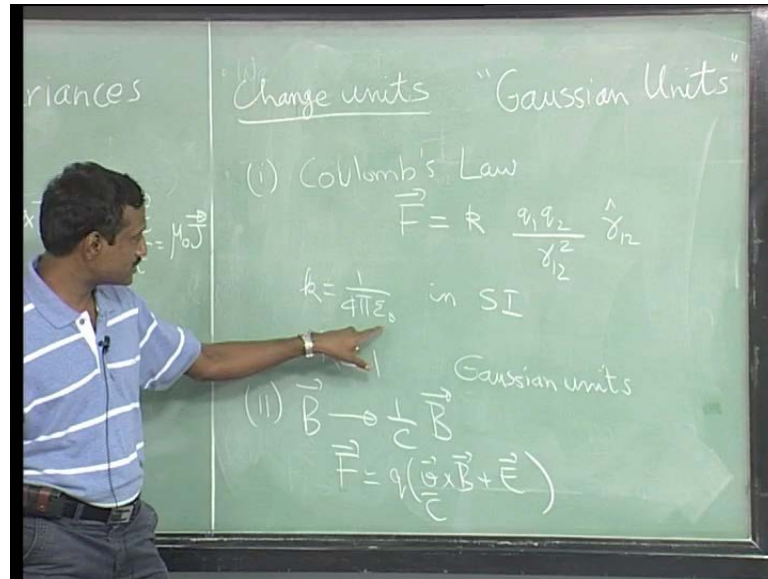 riances
= μ₀J⃗
Change units "Gaussian Units"
(i) Coulomb's Law
F⃗ = k q₁q₂/r₁₂² r̂₁₂
k = 1/4πε₀ in SI
1 Gaussian units
(ii) B⃗ → 1/c B⃗
F⃗ = q(v⃗/c × B⃗ + E⃗)